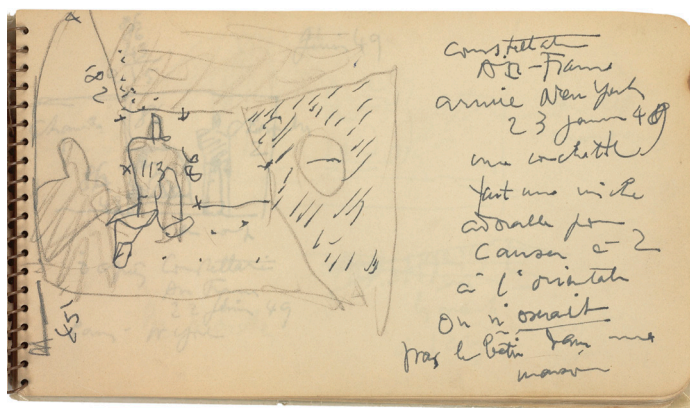 Constellation
Air-France
arrivée New York
23 janvier 49
une couchette
fait une niche
adorable pour
causer à 2
à l'orientale
On n'oserait
pas le bâtir dans une
maison
113
86